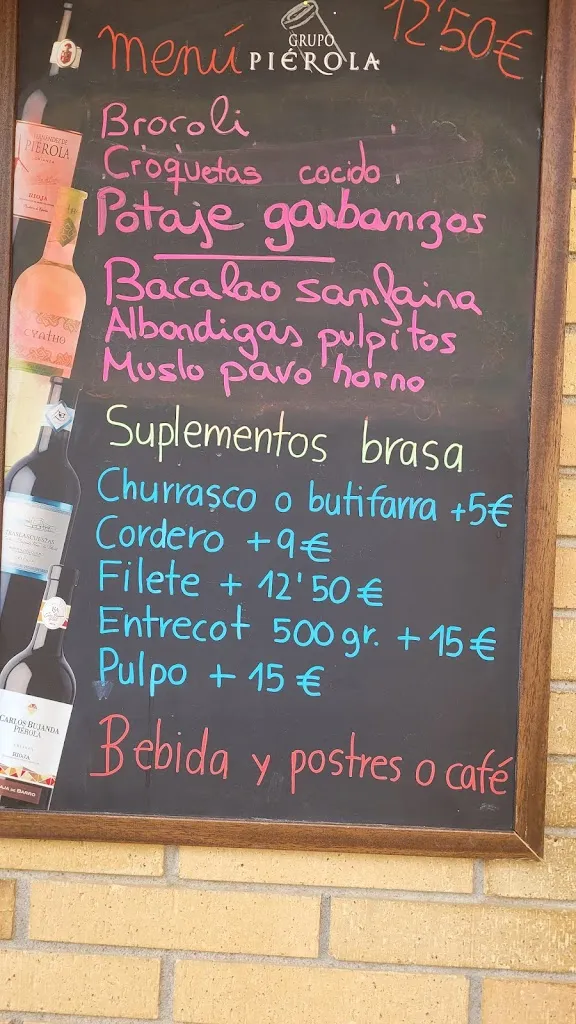 menú GRUPO PIÉROLA 12'50€
Brocoli
Croquetas cocido
Potaje garbanzos
Bacalao sanfaina
Albondigas pulpitos
Muslo pavo horno
Suplementos brasa
Churrasco o butifarra +5€
Cordero +9€
Filete + 12'50€
Entrecot 500gr. + 15€
Pulpo + 15€
Bebida y postres o café
PIÉROLA
RIOJA
CYATHO
CARLOS BUJANDA
PIÉROLA
RIOJA